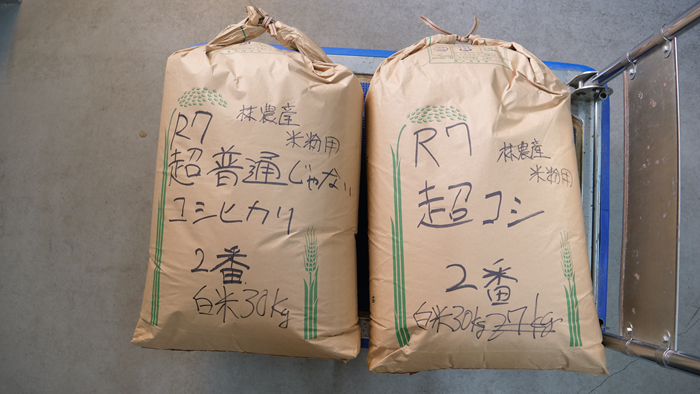 R7
林農産
米粉用
超普通じゃない
コシヒカリ
2番
白米30kg
R7
林農産
米粉用
超コシ
2番
白米30kg 27kg